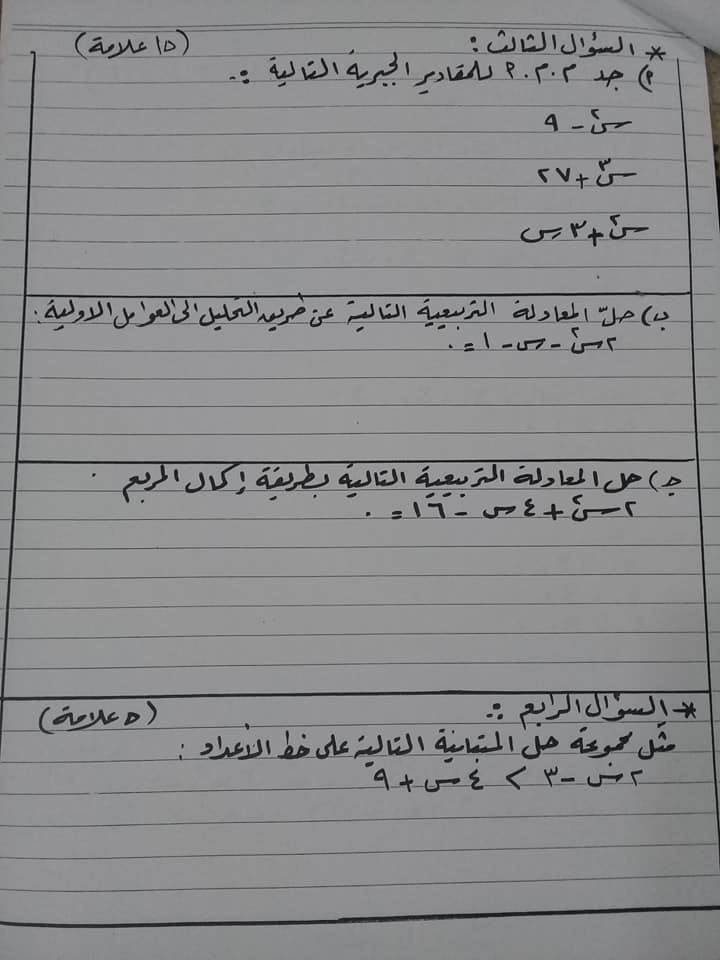 * السؤال الثالث : (١٥ علامة)
أ) جد م.م.أ للمقادير الجبرية التالية :.
س² - ٩
س³ + ٢٧
س² + ٣س
ب) حلّ المعادلة التربيعية التالية عن طريق التحليل الى العوامل الاولية .
٢س² - س - ١ = ٠
ج) حل المعادلة التربيعية التالية بطريقة إكمال المربع .
٢س² + ٤س - ١٦ = ٠
* السؤال الرابع :. (٥ علامة)
مثل مجموعة حل المتباينة التالية على خط الأعداد :
٢س - ٣ < ٤س + ٩